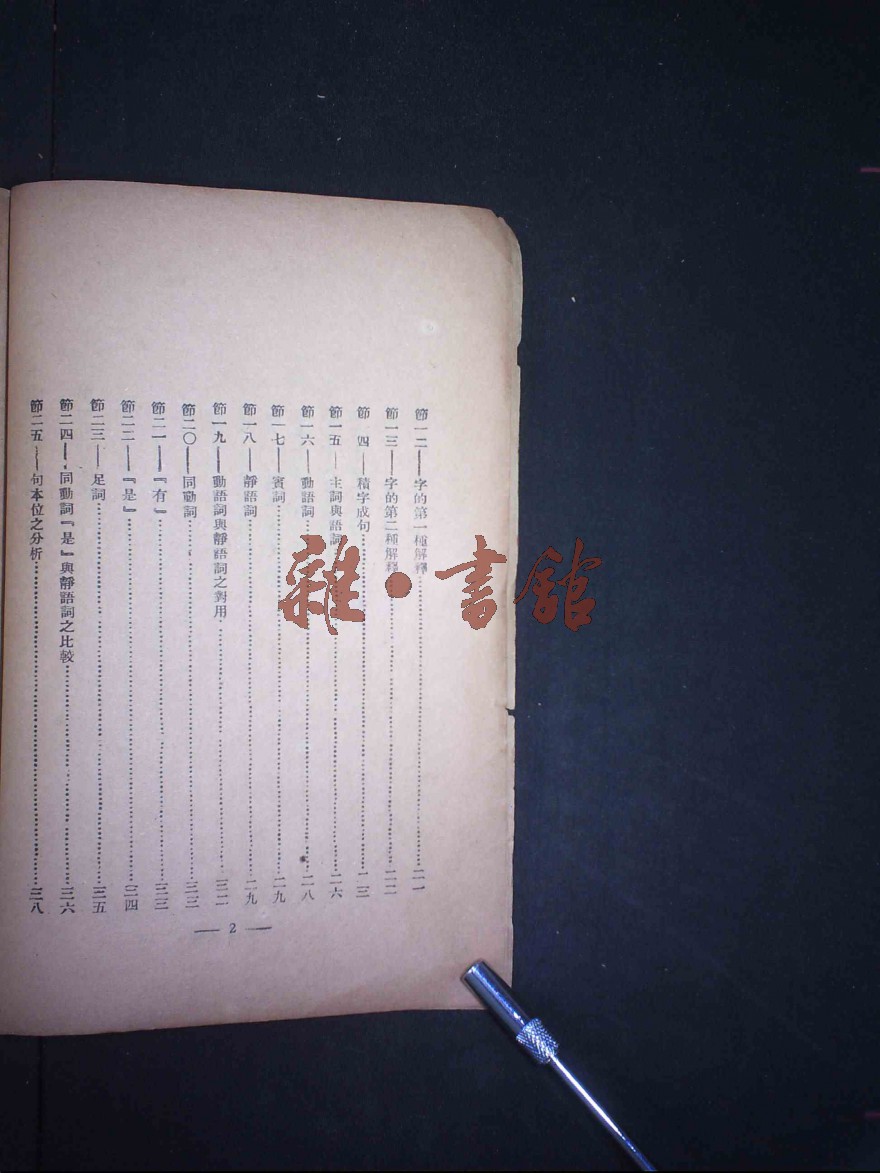 節一二——字的第一種解釋……二一
節一三——字的第二種解釋……二二
節一四——積字成句……二三
節一五——主詞與語詞……二六
節一六——動語詞……二八
節一七——賓詞……二九
節一八——靜語詞……二九
節一九——動語詞與靜語詞之對用……三二
節二〇——同動詞……三三
節二一——『有』……三三
節二二——『是』……三四
節二三——足詞……三五
節二四——同動詞『是』與靜語詞之比較……三六
節二五——句本位之分析……三八
— 2 —
雜·書館